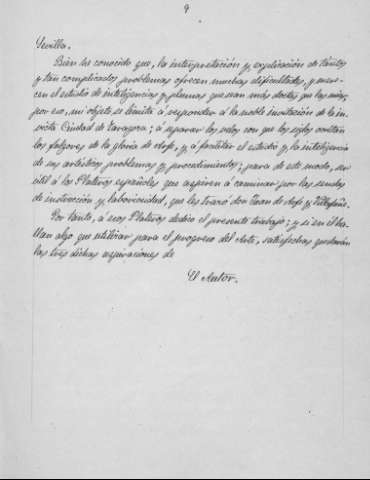 9
Sevilla.
Bien es conocido que, la interpretación y explicación de tantos
y tan complicados problemas ofrecen muchas dificultades, y mere-
cen el estudio de inteligencias y plumas que sean más doctas que las mias;
por eso, mi objeto se limita á responder á la noble invitación de la in-
victa Ciudad de Zaragoza; á apartar los velos con que los siglos ocultan
los fulgores de la gloria de Arfe, y á facilitar el estudio y la inteligencia
de sus artísticos problemas y procedimientos; para de este modo, ser
útil á los Plateros españoles que aspiren á caminar por las sendas
de instrucción y laboriosidad, que les trazó don Juan de Arfe y Villafañe.
Por tanto, á esos Plateros dedico el presente trabajo; y si en él ha-
llan algo que utilizar para el progreso del Arte, satisfechas quedarán
las tres dichas aspiraciones de
El Autor.